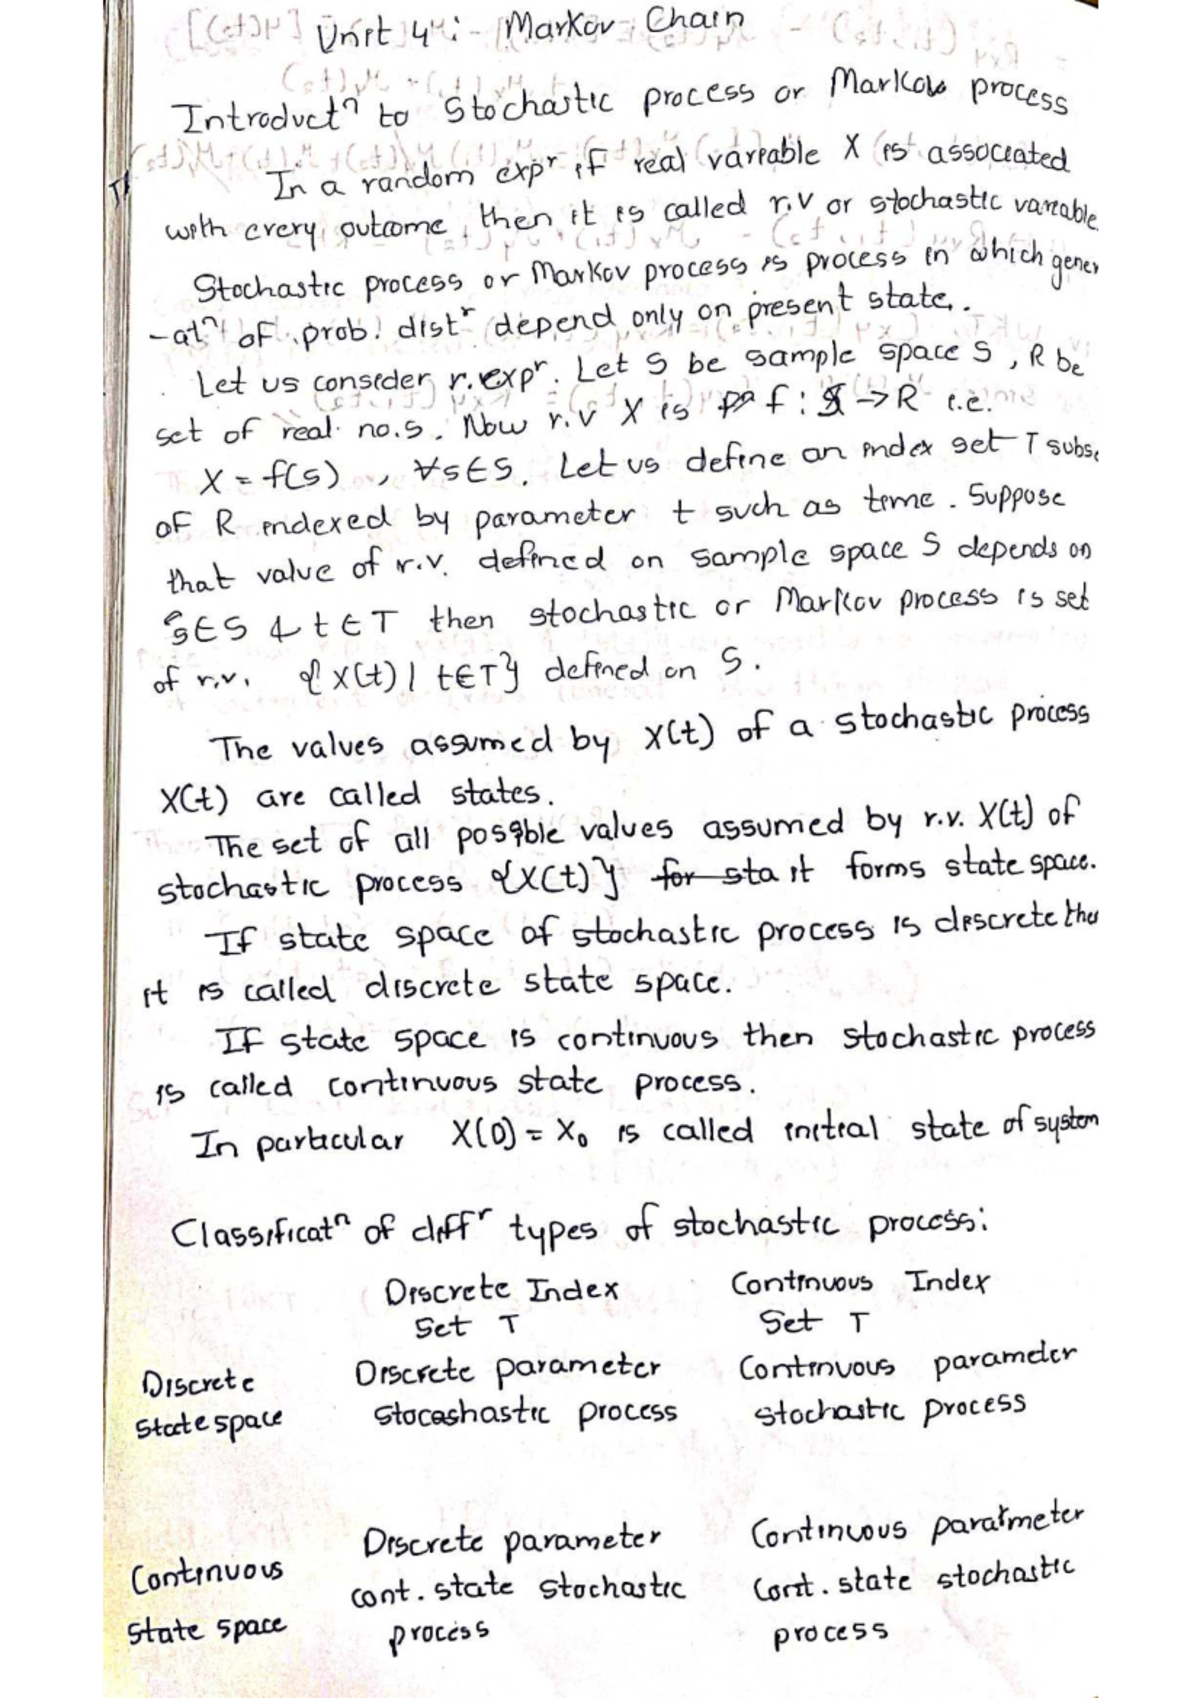 Unit 4 :- Markov Chain
Introductⁿ to Stochastic process or Markov process
In a random expʳ if real variable X is associated
with every outcome, then it is called r.v or stochastic variable.
Stochastic process or Markov process is process in which gener
-atⁿ of prob. distʳ depend only on present state.
Let us consider r.expʳ. Let S be sample space S, R be
set of real no.s. Now r.v X is f : S -> R i.e.
X = f(s), ∀s∈S. Let us define an index set T subse
of R indexed by parameter t such as time. Suppose
that value of r.v. defined on sample space S depends on
s∈S & t∈T then stochastic or Markov process is set
of r.v. {X(t) | t∈T} defined on S.
The values assumed by X(t) of a stochastic process
X(t) are called states.
The set of all possible values assumed by r.v. X(t) of
stochastic process {X(t)} for sta it forms state space.
If state space of stochastic process is discrete then
it is called discrete state space.
If state space is continuous then stochastic process
is called continuous state process.
In particular X(0) = X₀ is called initial state of system
Classificatⁿ of diffʳ types of stochastic process:
Discrete Index Continuous Index
Set T Set T
Discrete Discrete parameter Continuous parameter
State space Stocoshastic process stochastic process
Discrete parameter Continuous pararmeter
Continuous cont. state stochastic Cont. state stochastic
State space process process